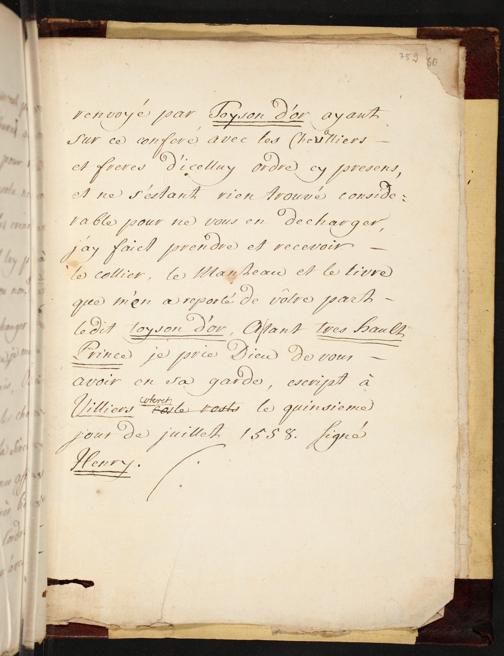 759 60
renvoyé par Toyson d'or ayant
sur ce conferé avec les Chevlliers -
et freres d'icelluy ordre cy presens,
et ne s'estant rien trouvé conside:
rable pour ne vous en decharger,
j'ay faict prendre et recevoir -
le collier, le Manteau et le livre
que m'en a reporté de vôtre part -
ledit toyson d'or, Atant tres hault
Prince je prie Dieu de vous -
avoir en sa garde, escript à
Villiers coteret le quinsieme
jour de juillet 1558. signé
Henry.